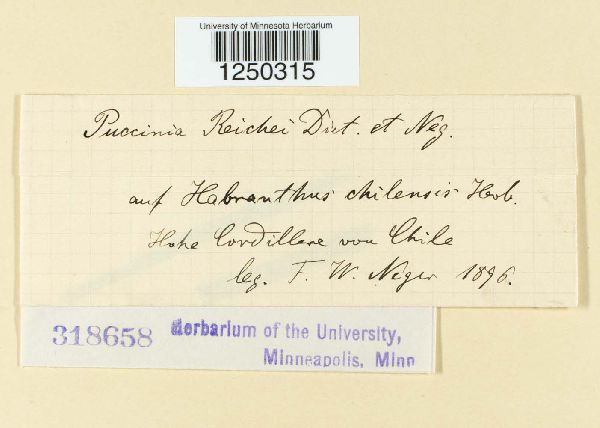 University of Minnesota Herbarium
1250315
Puccinia Reichei Diet. et Neg.
auf Habranthus chilensis Herb.
Hohe Cordillere von Chile
leg. F. W. Neger 1896.
318658 Herbarium of the University,
Minneapolis, Minn